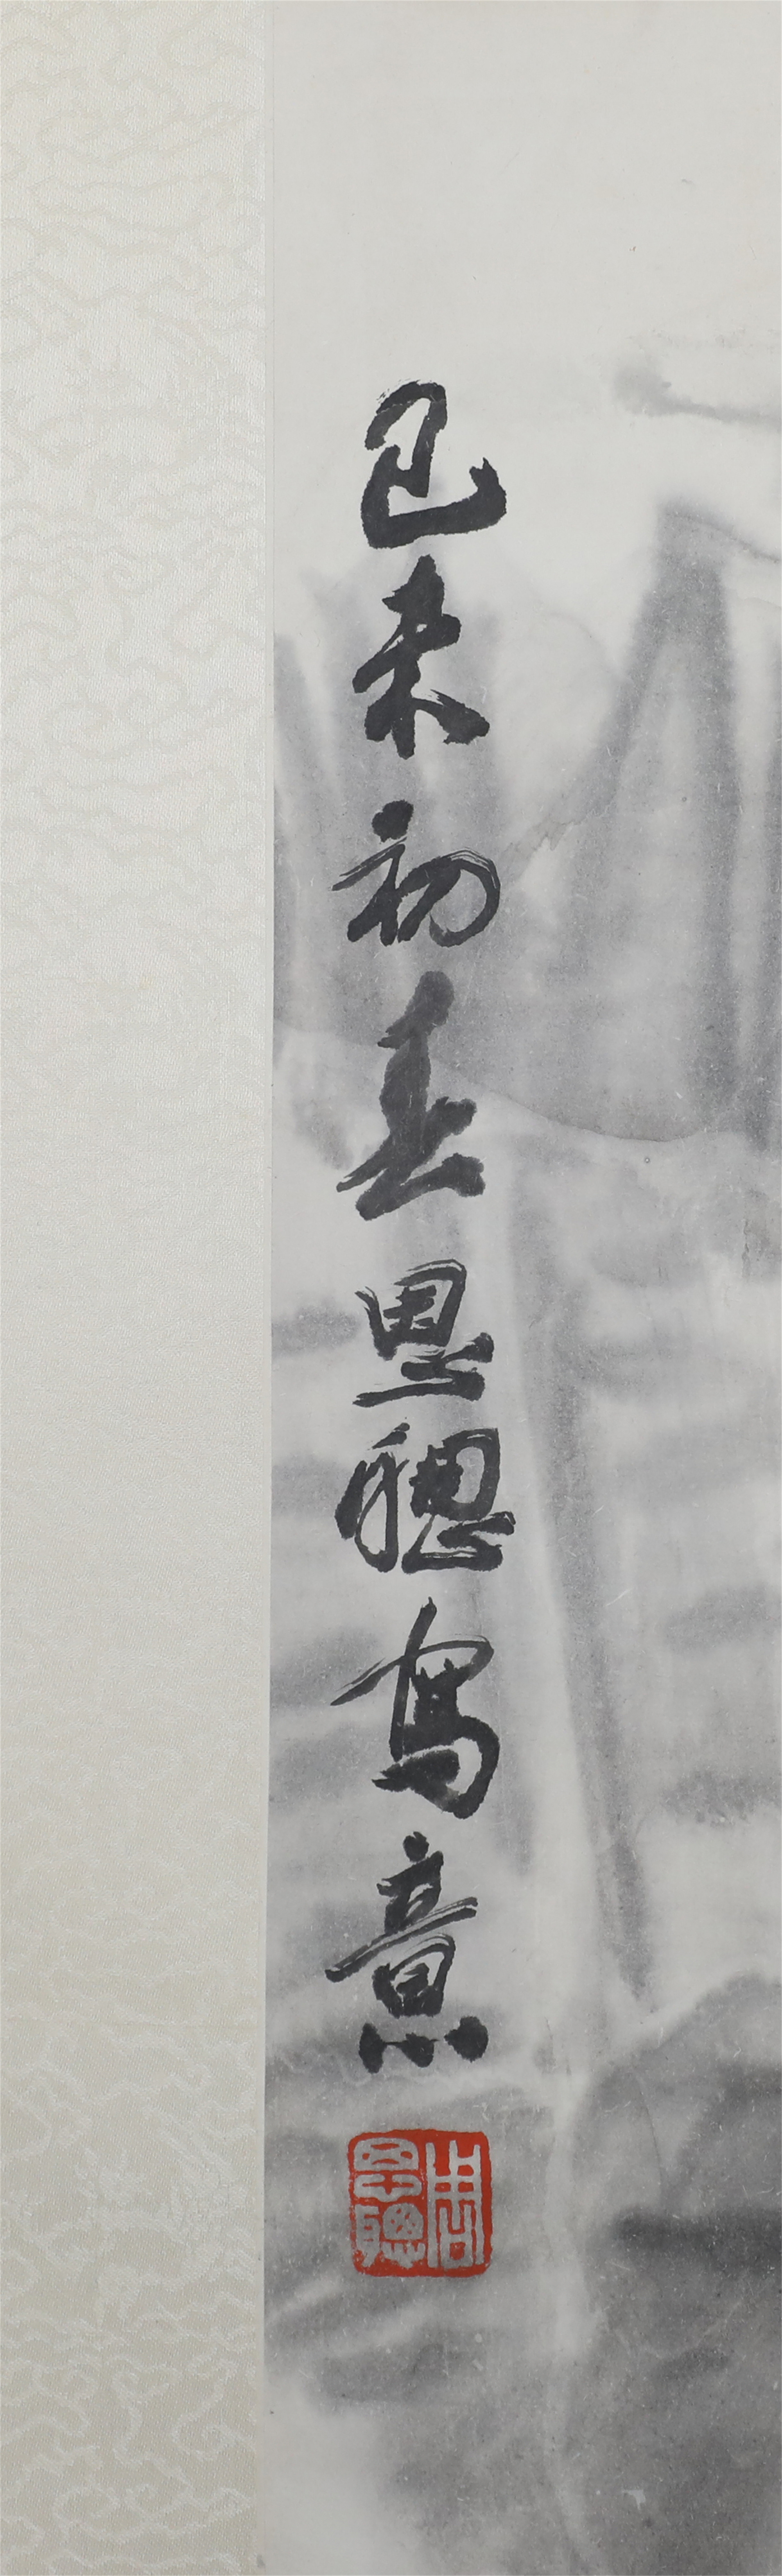 己未初春思聰寫意
周思聰